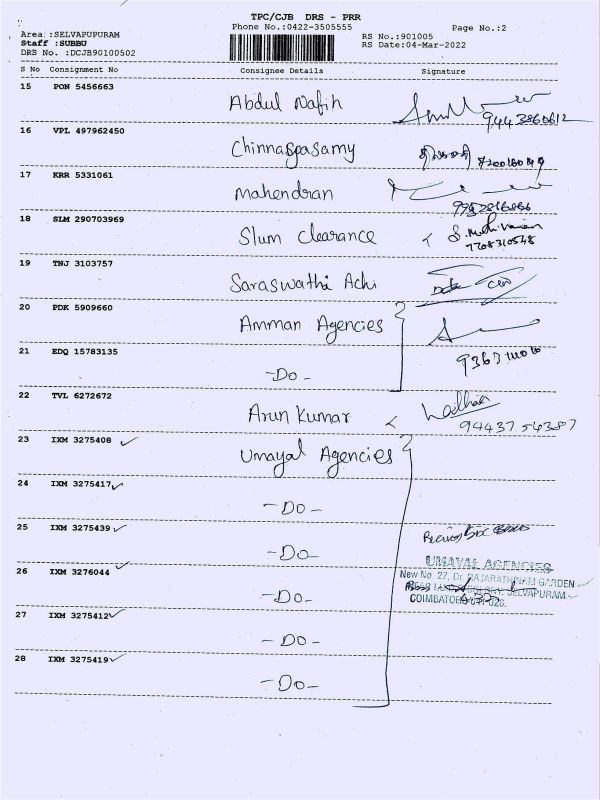 TPC/CJB DRS - PRR
Phone No.:0422-3505555
Page No.:2
Area :SELVAPUPURAM
Staff :SUBBU
DRS No. :DCJB90100502
RS No.:901005
RS Date:04-Mar-2022
S No Consignment No Consignee Details Signature
15 PON 5456663 Abdul Nafih
9443860612
16 VPL 497962450 Chinnappasamy
17 KRR 5331061 Mahendran
18 SLM 290703969 Slum Clearance
7708310548
19 TNJ 3103757 Saraswathi Achi
20 PDK 5909660 Amman Agencies
21 EDQ 15783135 -Do-
22 TVL 6272672 Arun Kumar
94437 54387
23 IXM 3275408 Umayal Agencies
24 IXM 3275417 -Do-
25 IXM 3275439 -Do-
UMAYAL AGENCIES
26 IXM 3276044 -Do-
New No. 27, Dr. RAJARATHINAM GARDEN
SELVAPURAM
COIMBATORE-641 026.
27 IXM 3275412 -Do-
28 IXM 3275419 -Do-